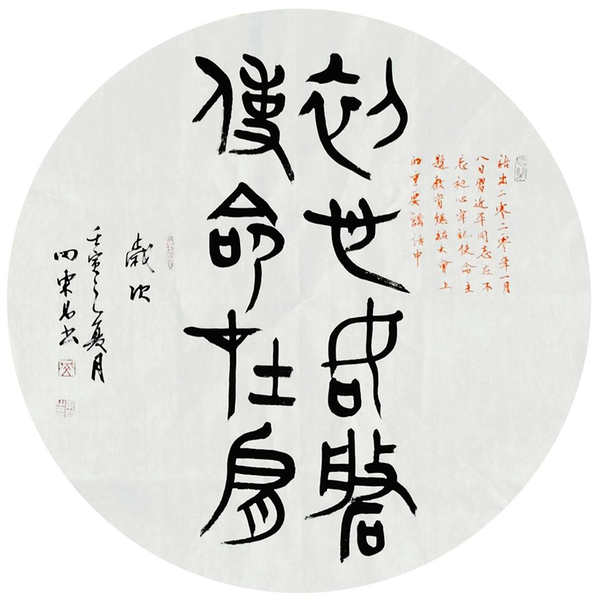 初心如磐
使命在肩
語出二零二零年一月
八日習近平同志在不
忘初心牢記使命主
題教育總結大會上
的重要講話中
歲次
壬寅之夏月